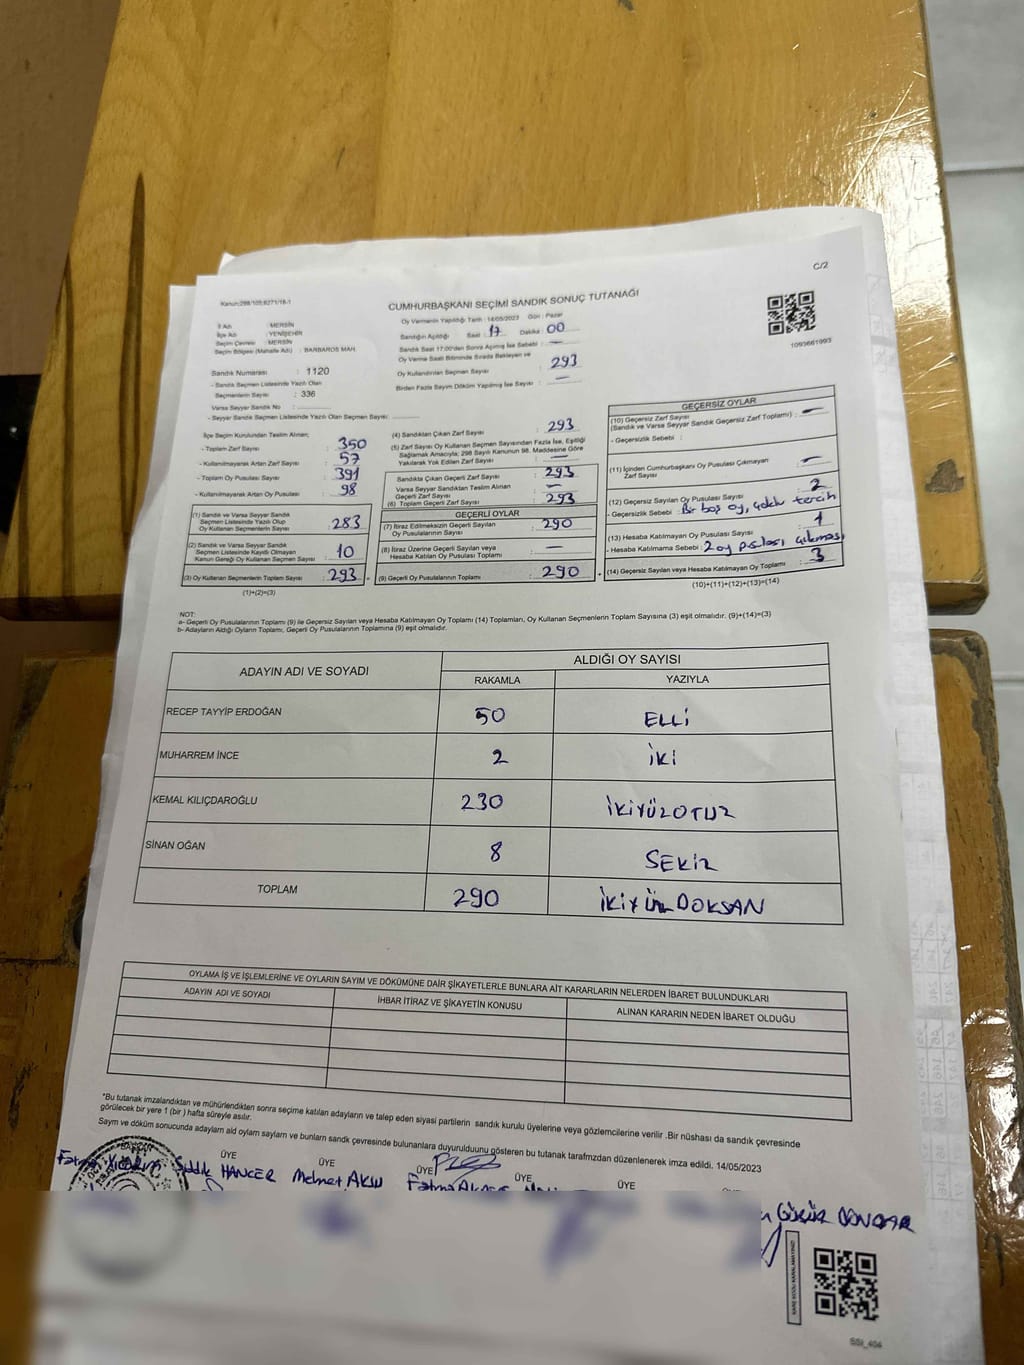 C/2
Kanun:298/105;6271/18-1
CUMHURBAŞKANI SEÇİMİ SANDIK SONUÇ TUTANAĞI
Oy Vermenin Yapıldığı Tarih : 14/05/2023 Gün : Pazar
İl Adı : MERSİN
İlçe Adı : YENİŞEHİR
Seçim Çevresi : MERSİN
Seçim Bölgesi (Mahalle Adı) : BARBAROS MAH.
Sandığın Açıldığı Saat : 17 Dakika : 00
Sandık Saat 17:00'den Sonra Açılmış İse Sebebi : —
Oy Verme Saati Bitiminde Sırada Bekleyen ve
Oy Kullandırılan Seçmen Sayısı : 293
Birden Fazla Sayım Döküm Yapılmış İse Sayısı : —
1093661993
Sandık Numarası : 1120
- Sandık Seçmen Listesinde Yazılı Olan
Seçmenlerin Sayısı : 336
Varsa Seyyar Sandık No :
- Seyyar Sandık Seçmen Listesinde Yazılı Olan Seçmen Sayısı:
İlçe Seçim Kurulundan Teslim Alınan;
- Toplam Zarf Sayısı : 350
- Kullanılmayarak Artan Zarf Sayısı : 57
- Toplam Oy Pusulası Sayısı : 391
- Kullanılmayarak Artan Oy Pusulası : 98
(1) Sandık ve Varsa Seyyar Sandık
Seçmen Listesinde Yazılı Olup
Oy Kullanan Seçmenlerin Sayısı : 283
(2) Sandık ve Varsa Seyyar Sandık
Seçmen Listesinde Kaydı Olmayan
Kanun Gereği Oy Kullanan Seçmen Sayısı : 10
(3) Oy Kullanan Seçmenlerin Toplam Sayısı : 293
(1)+(2)=(3)
(4) Sandıktan Çıkan Zarf Sayısı : 293
(5) Zarf Sayısı Oy Kullanan Seçmen Sayısından Fazla İse, Eşitliği
Sağlamak Amacıyla; 298 Sayılı Kanunun 98. Maddesine Göre
Yakılarak Yok Edilen Zarf Sayısı : —
Sandıkta Çıkan Geçerli Zarf Sayısı : 293
Varsa Seyyar Sandıktan Teslim Alınan
Geçerli Zarf Sayısı : —
(6) Toplam Geçerli Zarf Sayısı : 293
GEÇERLİ OYLAR
(7) İtiraz Edilmeksizin Geçerli Sayılan
Oy Pusulalarının Sayısı : 290
(8) İtiraz Üzerine Geçerli Sayılan veya
Hesaba Katılan Oy Pusulası Toplamı : —
(9) Geçerli Oy Pusulalarının Toplamı : 290
GEÇERSİZ OYLAR
(10) Geçersiz Zarf Sayısı
(Sandık ve Varsa Seyyar Sandık Geçersiz Zarf Toplamı) : —
- Geçersizlik Sebebi :
(11) İçinden Cumhurbaşkanı Oy Pusulası Çıkmayan
Zarf Sayısı : —
(12) Geçersiz Sayılan Oy Pusulası Sayısı : 2
- Geçersizlik Sebebi : Bir boş oy, çoklu tercih
(13) Hesaba Katılmayan Oy Pusulası Sayısı : 1
- Hesaba Katılmama Sebebi : 2 oy pusulası çıkması
(14) Geçersiz Sayılan veya Hesaba Katılmayan Oy Toplamı : 3
(10)+(11)+(12)+(13)=(14)
NOT:
a- Geçerli Oy Pusulalarının Toplamı (9) ile Geçersiz Sayılan veya Hesaba Katılmayan Oy Toplamı (14) Toplamları, Oy Kullanan Seçmenlerin Toplam Sayısına (3) eşit olmalıdır. (9)+(14)=(3)
b- Adayların Aldığı Oyların Toplamı, Geçerli Oy Pusulalarının Toplamına (9) eşit olmalıdır.
ADAYIN ADI VE SOYADI ALDIĞI OY SAYISI
RAKAMLA YAZIYLA
RECEP TAYYİP ERDOĞAN 50 ELLİ
MUHARREM İNCE 2 İKİ
KEMAL KILIÇDAROĞLU 230 İKİYÜZOTUZ
SİNAN OĞAN 8 SEKİZ
TOPLAM 290 İKİYÜZDOKSAN
OYLAMA İŞ VE İŞLEMLERİNE VE OYLARIN SAYIM VE DÖKÜMÜNE DAİR ŞİKAYETLERLE BUNLARA AİT KARARLARIN NELERDEN İBARET BULUNDUKLARI
ADAYIN ADI VE SOYADI İHBAR İTİRAZ VE ŞİKAYETİN KONUSU ALINAN KARARIN NEDEN İBARET OLDUĞU
*Bu tutanak imzalandıktan ve mühürlendikten sonra seçime katılan adayların ve talep eden siyasi partilerin sandık kurulu üyelerine veya gözlemcilerine verilir .Bir nüshası da sandık çevresinde
görülecek bir yere 1 (bir ) hafta süreyle asılır.
Sayım ve döküm sonucunda adayların ald oyların sayların ve bunların sandık çevresinde bulunanlara duyurulduunu gösteren bu tutanak tarafımzdan düzenlenerek imza edildi. 14/05/2023
ÜYE ÜYE ÜYE ÜYE ÜYE
Fatma Yıldırım Sıddık HANCER Mehmet AKIN Fatma
GÜRÜZ
SSI_404